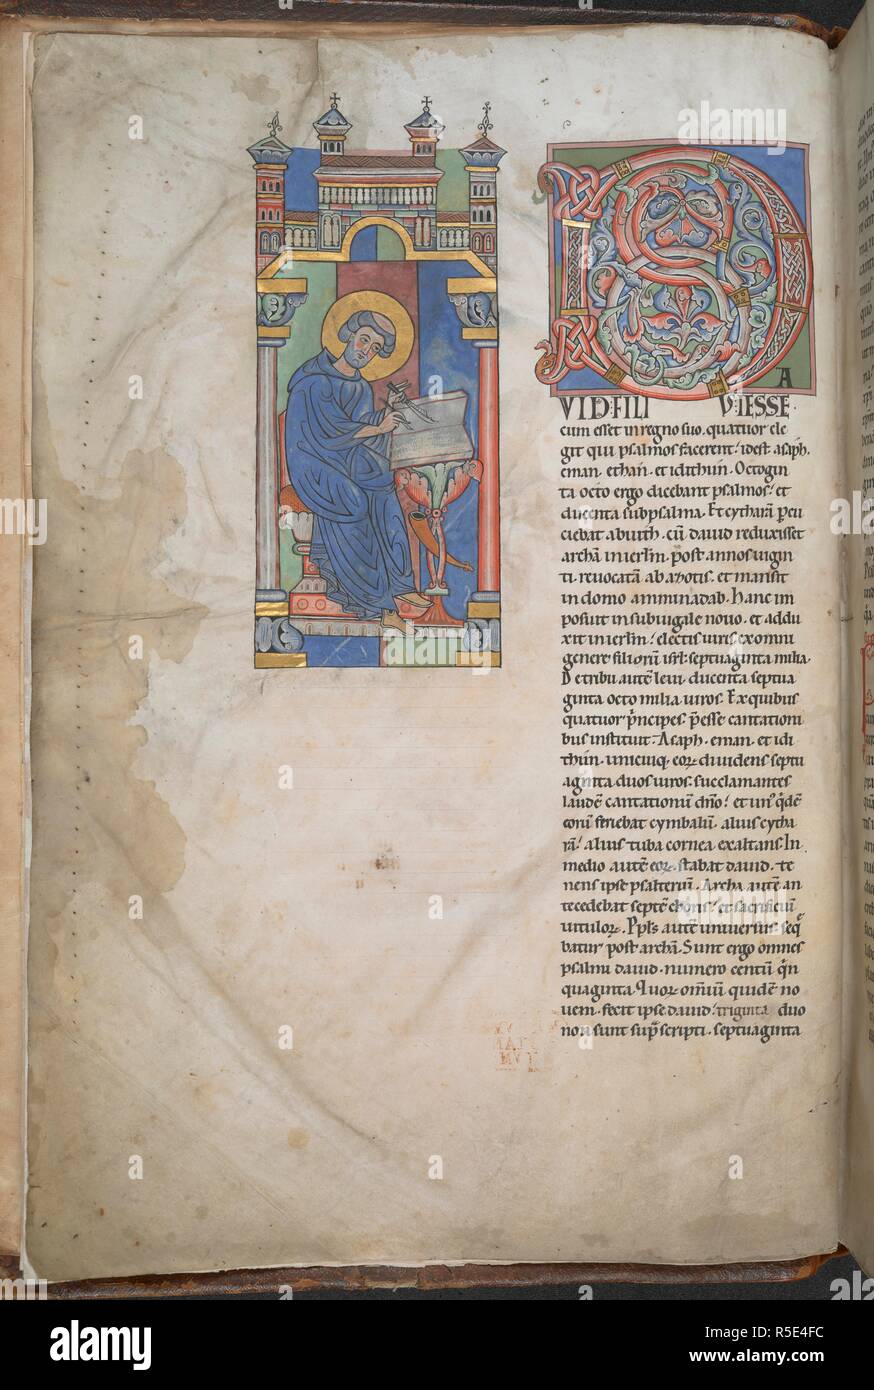 D
A
VID·FILI V·IESSE·
cum esset in regno suo. quatuor ele
git qui psalmos facerent! idest asaph.
eman. ethan. et idithun. Octogin
ta octo ergo dicebant psalmos! et
ducenta subpsalma. Et cytharā pcu
ciebat abiuth. cū dauid reduxisset
archā in ierlm. post annos uigin
ti. reuocatā ab azotis. et mansit
in domo amminadab. hanc im
posuit in subiugale nouo. et addu
xit in ierlm! electis uiris ex omni
genere filiorū isrl. septuaginta milia.
De tribu autē leui. ducenta septua
ginta octo milia uiros. Ex quibus
quatuor principes. pesse cantationi
bus instituit. Asaph. eman. et idi
thun. unicuiq. eorꝝ diuidens septu
aginta duos uiros. succlamantes
laudē cantationū dño! et un' qdē
eorū feriebat cymbalū. alius cytha
rā! alius tuba cornea exaltans. In
medio autē eorꝝ stabat dauid. te
nens ipse psalteriū. Archa autē an
tecedebat septē choris! et sacrificiū
uitulorꝝ. Ppls autē uniuersus seq
batur post archā. Sunt ergo omnes
psalmi dauid. numero centū qn
quaginta. Quorꝝ omiū quidē no
uem. fecit ipse dauid! triginta duo
non sunt supscripti. septuaginta
alamy
a
alamy
Image ID: R5E4FC
www.alamy.com